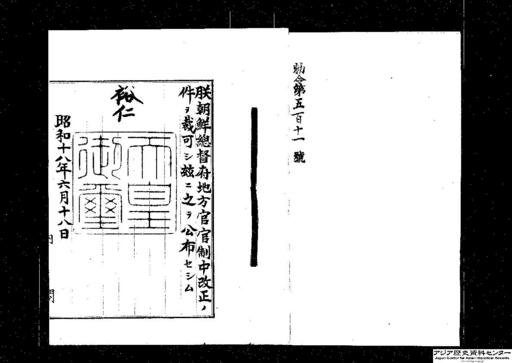 勅令第五百十一號
朕朝鮮總督府地方官官制中改正ノ
件ヲ裁可シ茲ニ之ヲ公布セシム
裕仁
天皇
御璽
昭和十八年六月十八日
内
閣
アジア歴史資料センター
Japan Center for Asian Historical Records